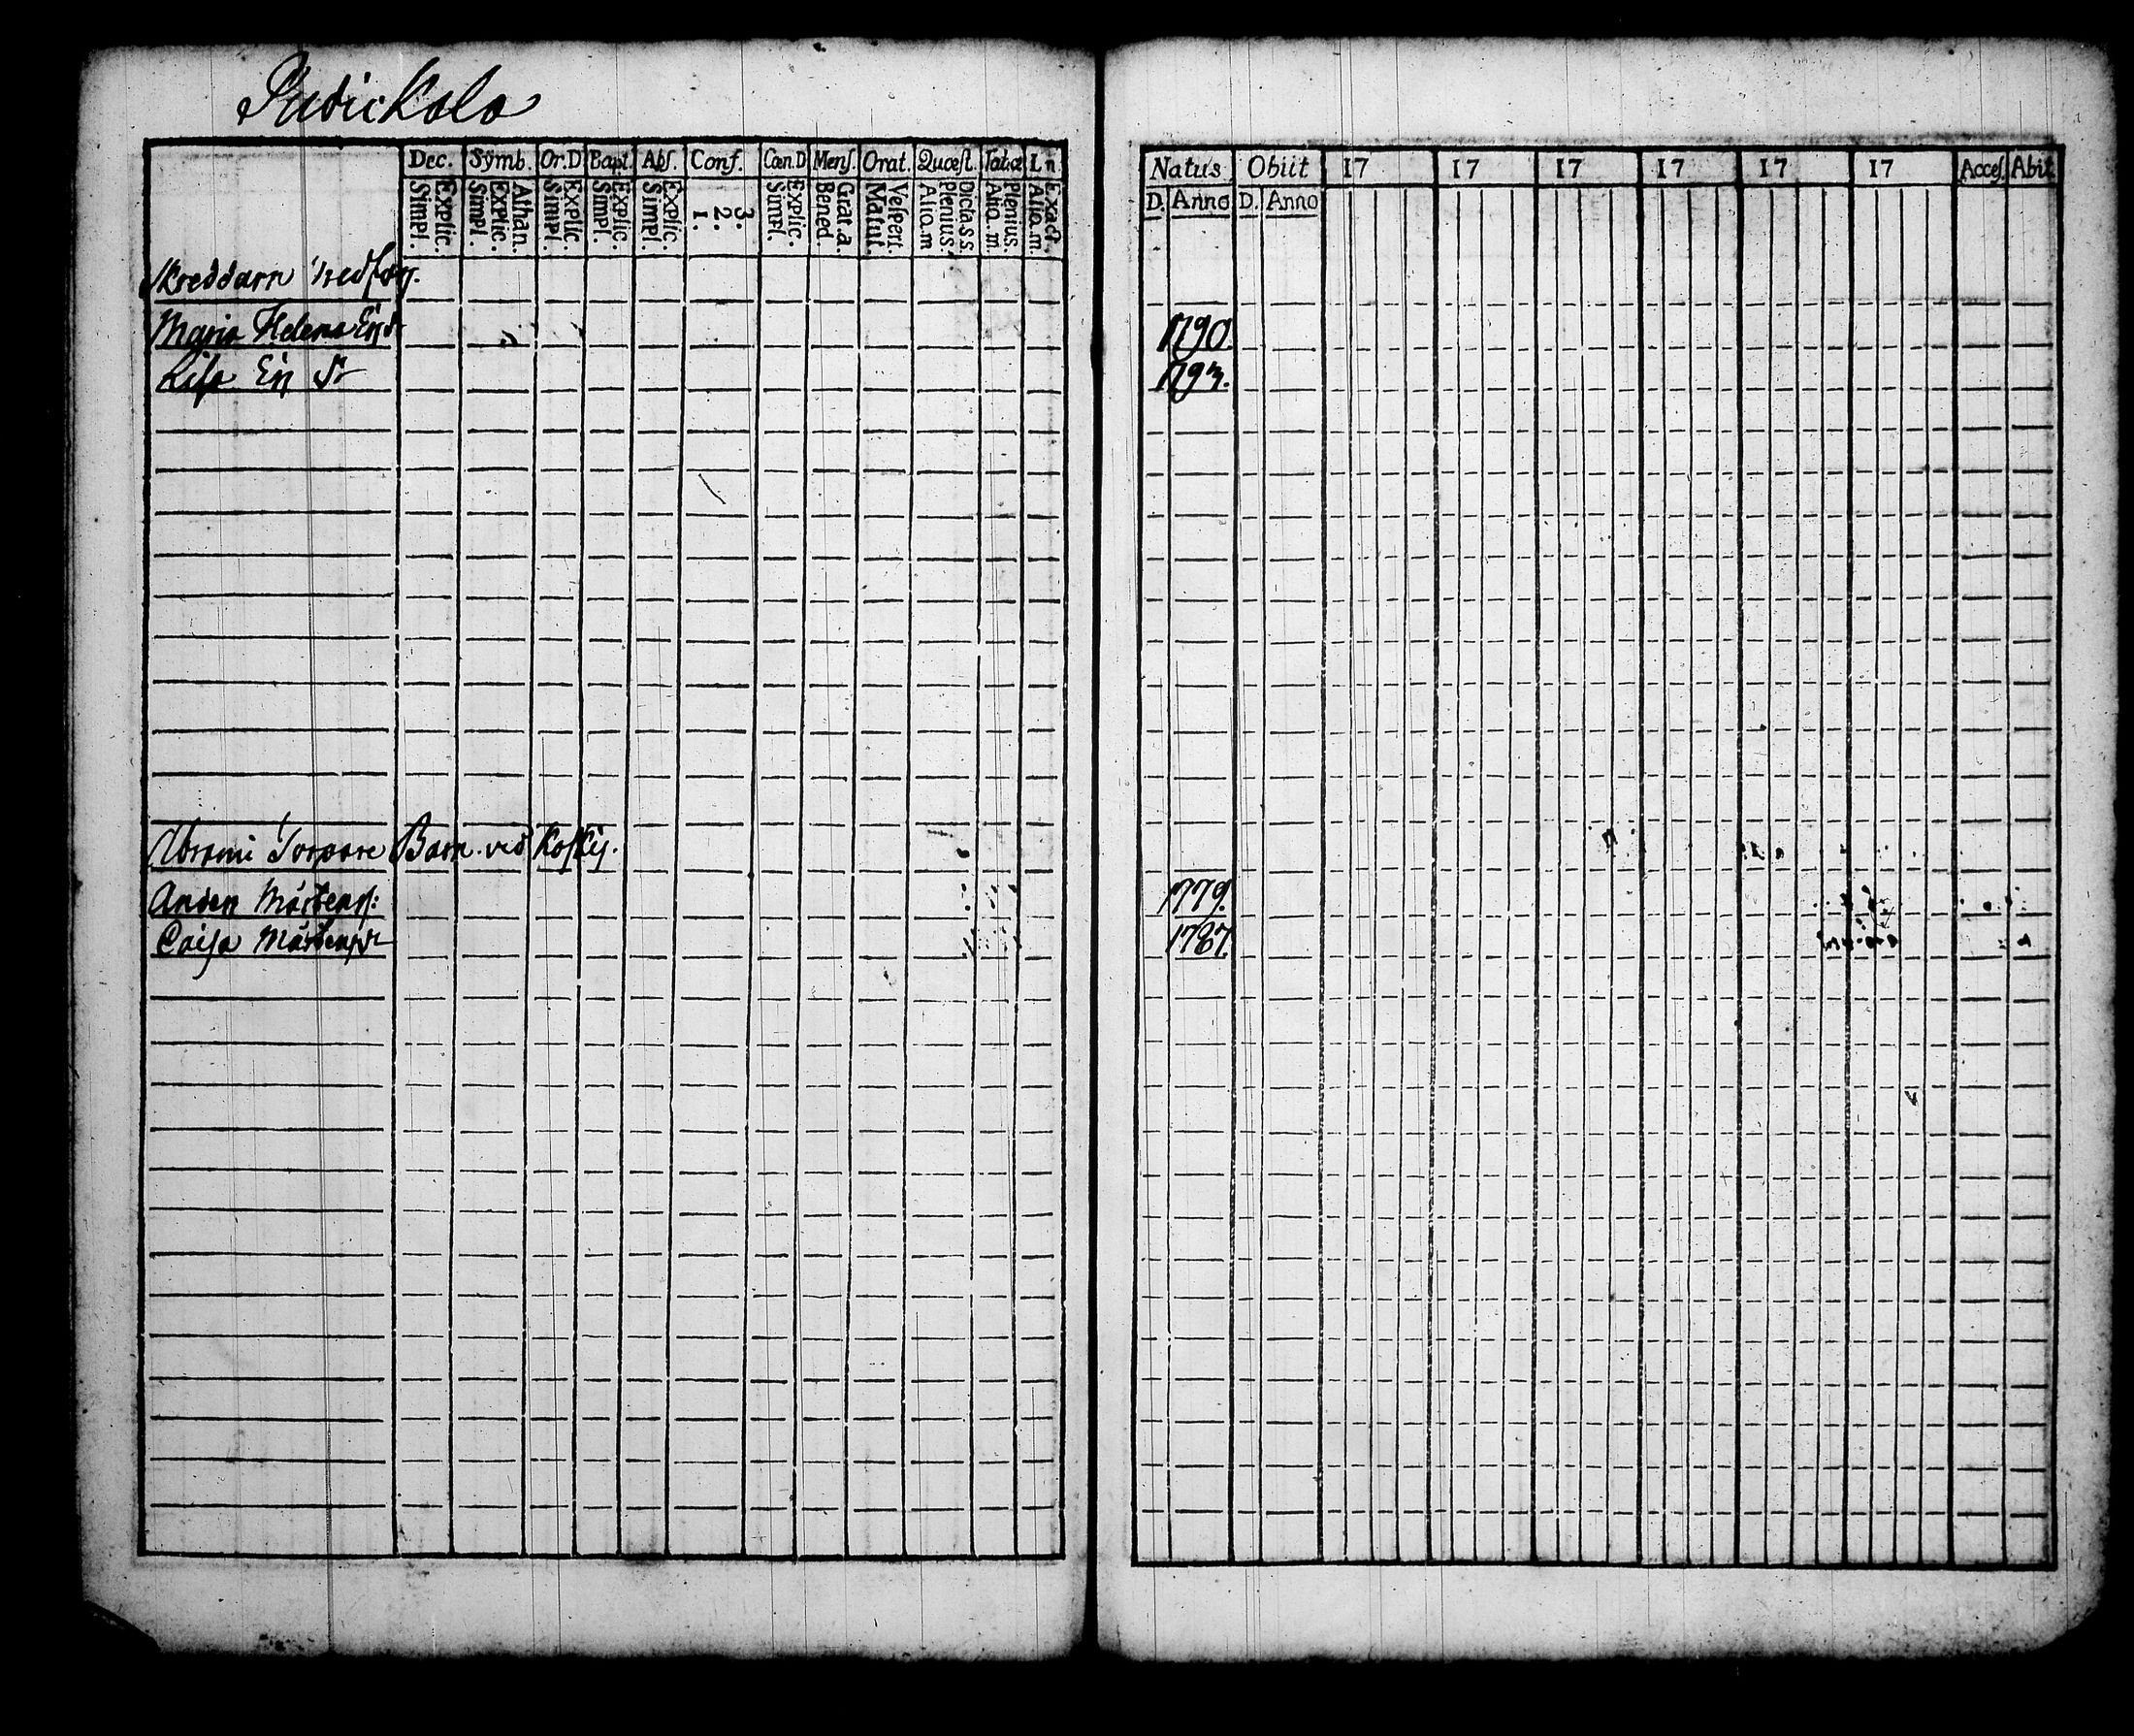 Pudickala
Dec. Symb. Or.D Bapt. Abs. Conf. Cœn.D Mens. Orat. Quœst. Tabœ I.n
Explic. Simpl. Athan. Explic. Simpl. Explic. Simpl. Explic. Simpl. Explic. Simpl. 3. 2. 1. Explic. Simpl. Grat.a. Bened. Vespert. Matut. Dicta.s.s. Plenius. Alio.m Plenius. Alio.m Exact. Alio.m.
Natus Obiit 17 17 17 17 17 17 Acces. Abit
D. Anno D. Anno
Maria Helena 1790
Lisa 1793.
Abrami Torpare Barn vid
Anders Mårtens: 1779.
Caisa Mårtensdr 1787.